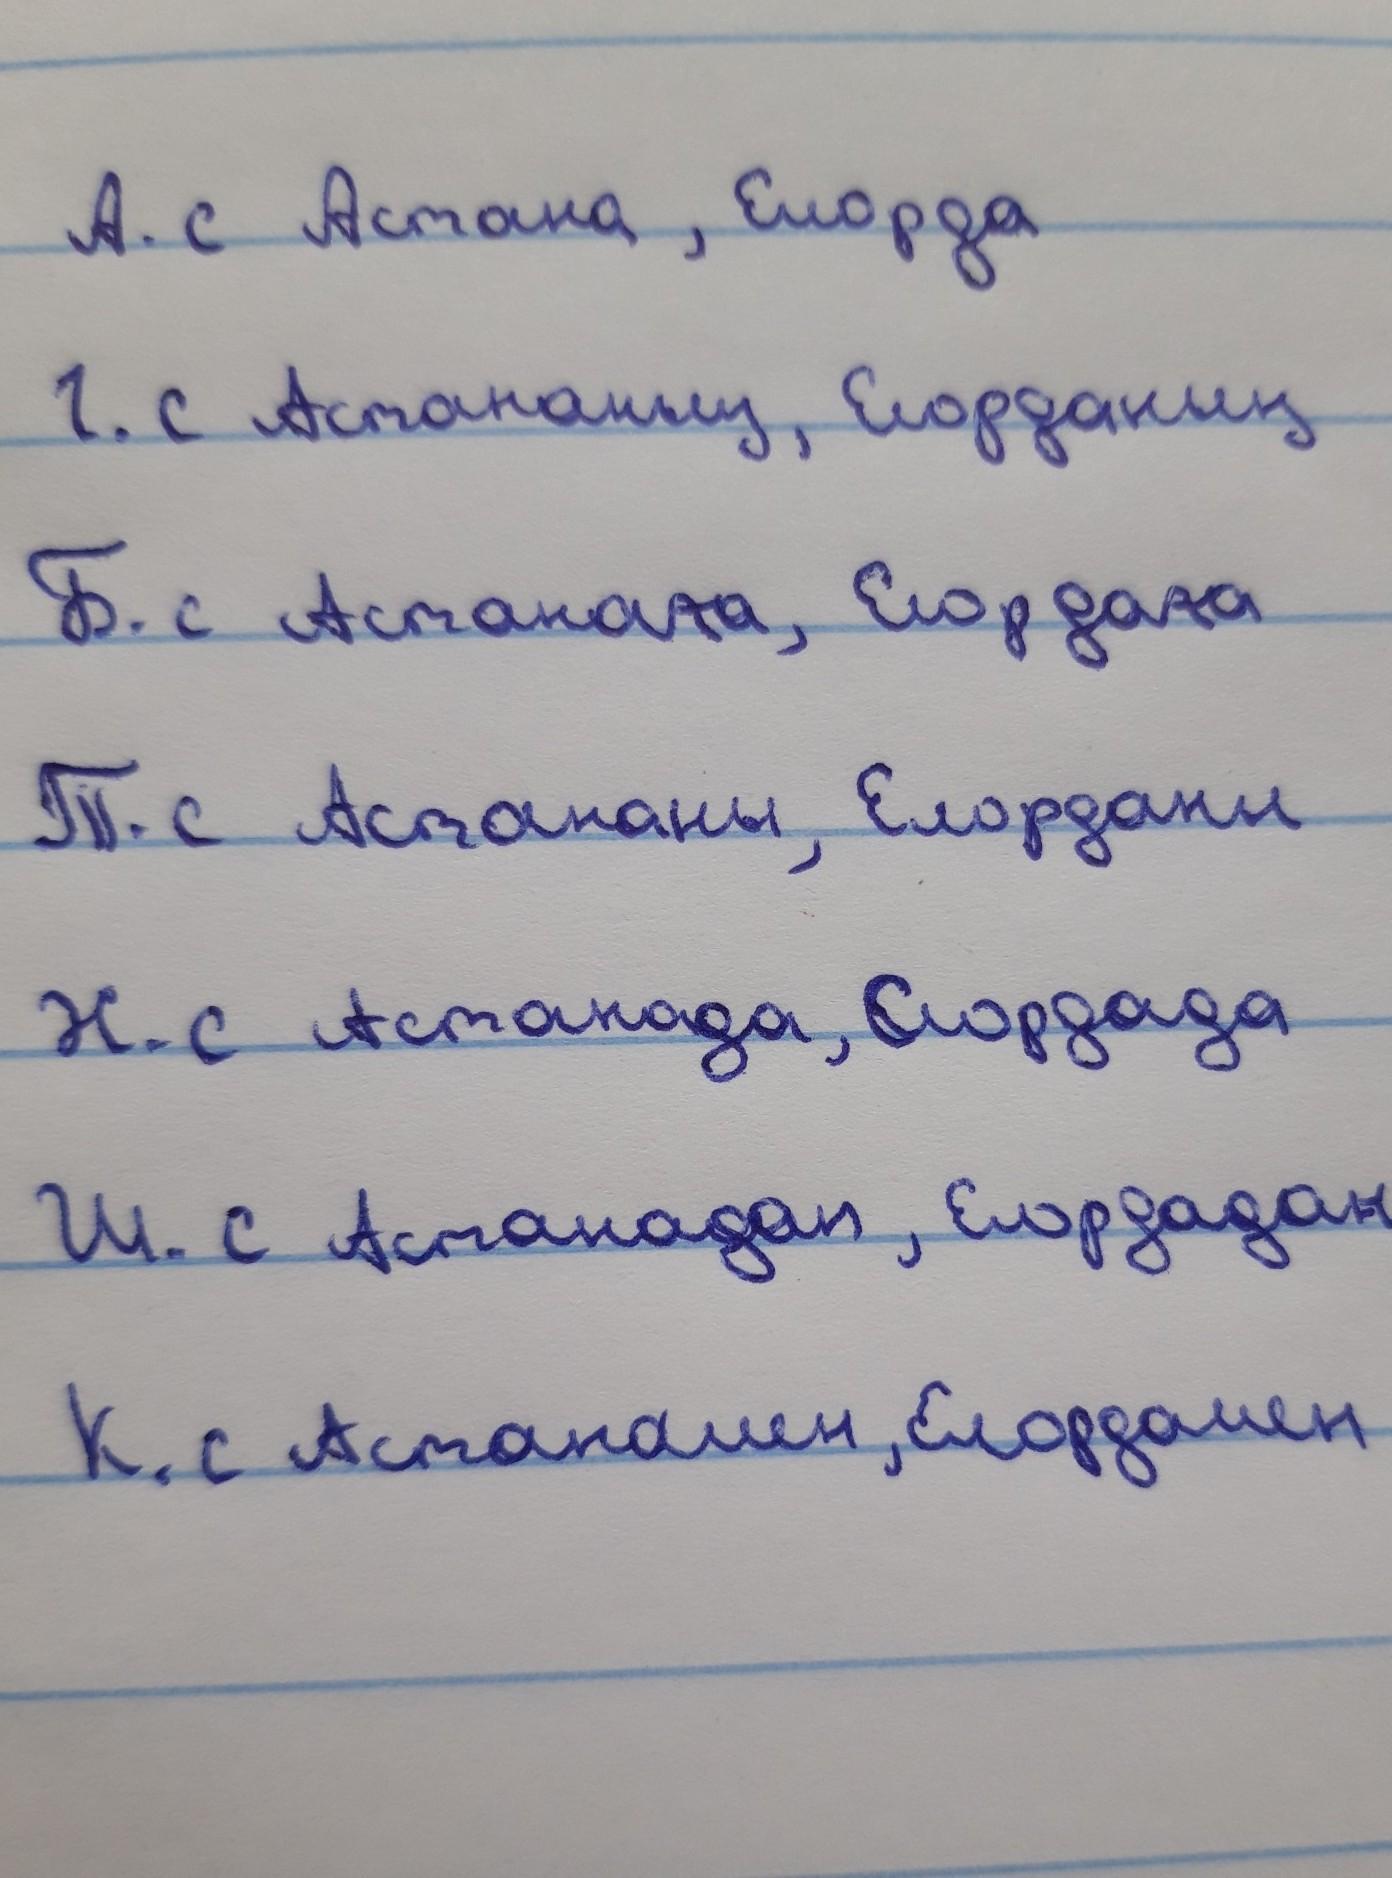 А. с Астана, Елорда
І. с Астананың, Елорданың
Б. с Астанаға, Елордаға
Т. с Астананы, Елорданы
Ж. с Астанада, Елордада
Ш. с Астанадан, Елордадан
К. с Астанамен, Елордамен